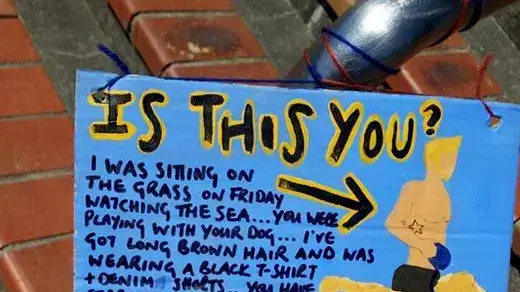 IS THIS YOU?
I WAS SITTING ON
THE GRASS ON FRIDAY
WATCHING THE SEA... YOU WERE
PLAYING WITH YOUR DOG... I'VE
GOT LONG BROWN HAIR AND WAS
WEARING A BLACK T-SHIRT
+ DENIM SHORTS... YOU HAVE